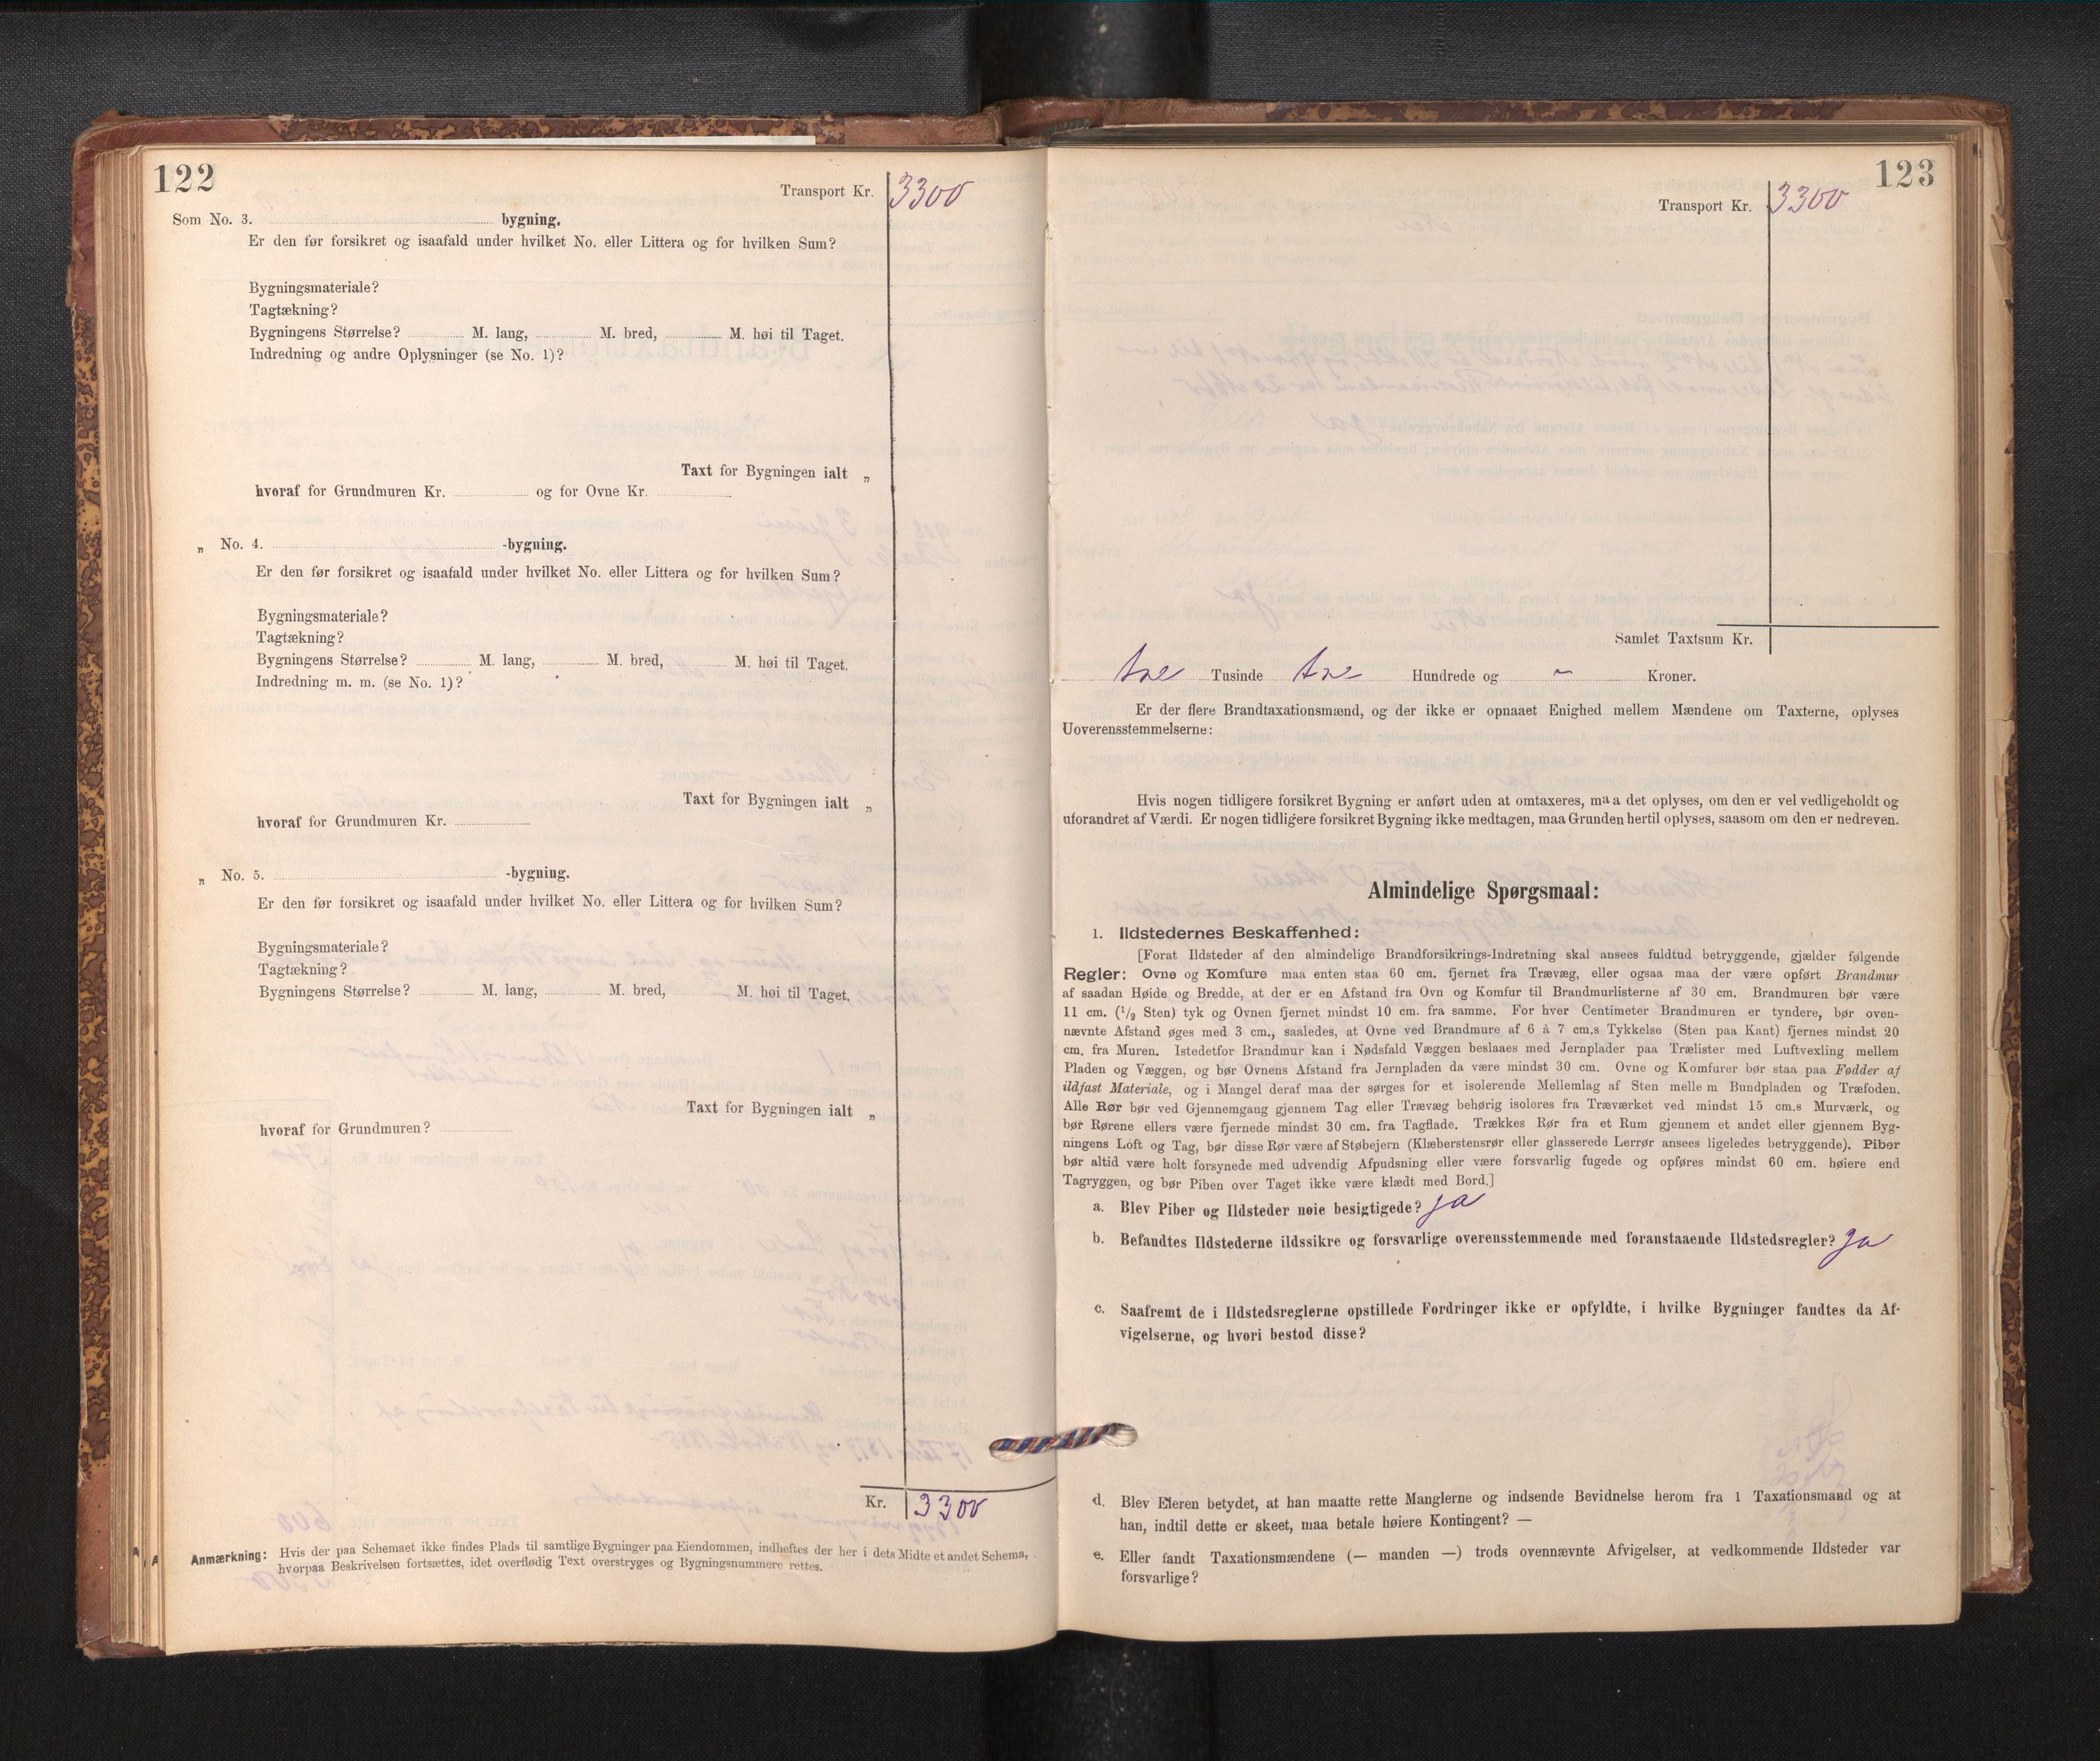 122
Transport Kr. 3300
Som No. 3. bygning.
Er den før forsikret og isaafald under hvilket No. eller Littera og for hvilken Sum?
Bygningsmateriale?
Tagtækning?
Bygningens Størrelse? M. lang, M. bred, M. høi til Taget.
Indredning og andre Oplysninger (se No. 1)?
Taxt for Bygningen ialt „
hvoraf for Grundmuren Kr. og for Ovne Kr.
„ No. 4. -bygning.
Er den før forsikret og isaafald under hvilket No. eller Littera og for hvilken Sum?
Bygningsmateriale?
Tagtækning?
Bygningens Størrelse? M. lang, M. bred, M. høi til Taget.
Indredning m. m. (se No. 1)?
Taxt for Bygningen ialt „
hvoraf for Grundmuren Kr.
„ No. 5. -bygning.
Er den før forsikret og isaafald under hvilket No. eller Littera og for hvilken Sum?
Bygningsmateriale?
Tagtækning?
Bygningens Størrelse? M. lang, M. bred, M. høi til Taget.
Taxt for Bygningen ialt „
hvoraf for Grundmuren?
Kr. 3300
Anmærkning: Hvis der paa Schemaet ikke findes Plads til samtlige Bygninger paa Eiendommen, indheftes der her i dets Midte et andet Schema,
hvorpaa Beskrivelsen fortsættes, idet overflødig Text overstryges og Bygningsnummere rettes.
123
Transport Kr. 3300
Samlet Taxtsum Kr.
tre Tusinde tre Hundrede og – Kroner.
Er der flere Brandtaxationsmænd, og der ikke er opnaaet Enighed mellem Mændene om Taxterne, oplyses
Uoverensstemmelserne:
Hvis nogen tidligere forsikret Bygning er anført uden at omtaxeres, maa det oplyses, om den er vel vedligeholdt og
uforandret af Værdi. Er nogen tidligere forsikret Bygning ikke medtagen, maa Grunden hertil oplyses, saasom om den er nedreven.
Almindelige Spørgsmaal:
1. Ildstedernes Beskaffenhed:
[Forat Ildsteder af den almindelige Brandforsikrings-Indretning skal ansees fuldtud betryggende, gjælder følgende
Regler: Ovne og Komfure maa enten staa 60 cm. fjernet fra Trævæg, eller ogsaa maa der være opført Brandmur
af saadan Høide og Bredde, at der er en Afstand fra Ovn og Komfur til Brandmurlisterne af 30 cm. Brandmuren bør være
11 cm. (1/2 Sten) tyk og Ovnen fjernet mindst 10 cm. fra samme. For hver Centimeter Brandmuren er tyndere, bør oven-
nævnte Afstand øges med 3 cm., saaledes, at Ovne ved Brandmure af 6 à 7 cm.s Tykkelse (Sten paa Kant) fjernes mindst 20
cm. fra Muren. Istedetfor Brandmur kan i Nødsfald Væggen beslaaes med Jernplader paa Trælister med Luftvexling mellem
Pladen og Væggen, og bør Ovnens Afstand fra Jernpladen da være mindst 30 cm. Ovne og Komfurer bør staa paa Fødder af
ildfast Materiale, og i Mangel deraf maa der sørges for et isolerende Mellemlag af Sten mellem Bundpladen og Træfoden.
Alle Rør bør ved Gjennemgang gjennem Tag eller Trævæg behørig isoleres fra Træværket ved mindst 15 cm.s Murværk, og
bør Rørene ellers være fjernede mindst 30 cm. fra Tagflade. Trækkes Rør fra et Rum gjennem et andet eller gjennem Byg-
ningens Loft og Tag, bør disse Rør være af Støbejern (Klæberstensrør eller glasserede Lerrør ansees ligeledes betryggende). Piber
bør altid være helt forsynede med udvendig Afpudsning eller være forsvarlig fugede og opføres mindst 60 cm. høiere end
Tagryggen, og bør Piben over Taget ikke være klædt med Bord.]
a. Blev Piber og Ildsteder nøie besigtigede? ja
b. Befandtes Ildstederne ildssikre og forsvarlige overensstemmende med foranstaaende Ildstedsregler? ja
c. Saafremt de i Ildstedsreglerne opstillede Fordringer ikke er opfyldte, i hvilke Bygninger fandtes da Af-
vigelserne, og hvori bestod disse?
d. Blev Eieren betydet, at han maatte rette Manglerne og indsende Bevidnelse herom fra 1 Taxationsmand og at
han, indtil dette er skeet, maa betale høiere Kontingent? —
e. Eller fandt Taxationsmændene (— manden —) trods ovennævnte Afvigelser, at vedkommende Ildsteder var
forsvarlige?